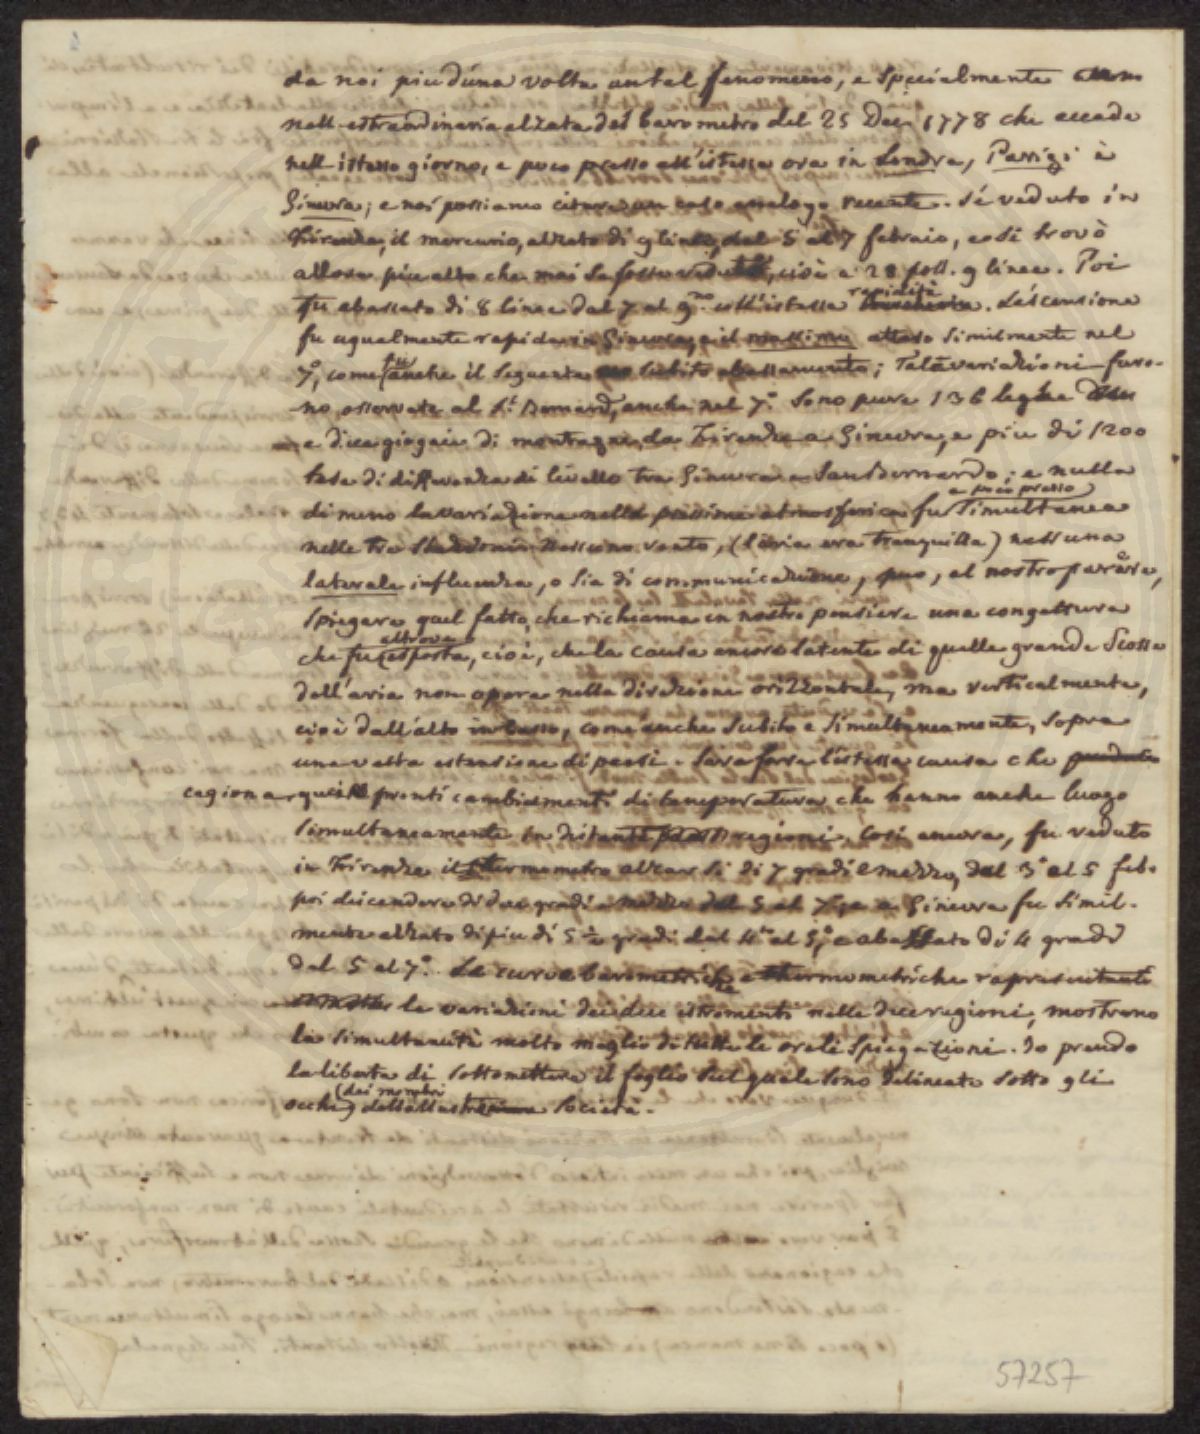 da noi piu d'una volta un tal fenomeno, e specialmente
nell estraordinaria alzata del barometro del 25 Dec. 1778 che accade
nell istesso giorno, e poco presso all'istessa ora in Londra, Parrigi è
Ginevra; e noi possiamo citare un caso analogo recente. Sé veduto in
Firenze, il mercurio, alzato di 9 linee, dal 5 al 7 febraio, e si trovò
allora piu alto che mai sa fosse veduto, cioè a 28 poll. 9 linee. Poi
fu abassato di 8 linee dal 7 al 9.no coll'istessa rapidità. L'escensione
fu ugualmente rapida in Ginevra, e il massimo atteso similmente nel
7.o, come fu anche il seguente subito abassamento; Tale variazioni furo-
-no osservate al S.t Bernard, anche nel 7.o Sono pure 136 leghe
e dice giogaie di montagne, da Firenze a Ginevra, e piu di 1200
tese di differenza di livello tra Ginevra e San Bernardo; e nulla
dimeno la variazione nella pressione atmosferica fu a poco presso simultanea
nelle tre Stazioni. Nessuno vento, (l'aria era tranquilla) nessuna
laterale influenza, o sia di communicazione, puo, al nostro parere,
spiegare quel fatto, che richiama in nostro pensiere una congettura
che fu altrove esposta, cioè, che la causa ancora latente di quelle grande scosse
dell'aria non opera nella direzione orizzontale, ma verticalmente,
cioè dall'alto in basso, come anche subito e simultaneamente, sopra
una vasta estensione di paesi. Sara forse l'istessa causa che
cagiona, quelli pronti cambiamenti di temperatura che hanno anche luogo
simultaneamente in distante regioni. Cosi ancora, fu veduto
in Firenze il thermometro alzarsi di 7 gradi e mezzo, dal 3.o al 5 feb.
poi discendere di due gradi e mezzo dal 5 al 7. ; e a Ginevra fu simil-
mente alzato di piu di 5 ½ gradi dal 4.to al 5.o, e abassato di 4 gradi
dal 5 al 7.o. Le curve barometriche e thermometriche rapresentante
le variazioni dei due istromenti nelle due regioni, mostrano
la simultaneità molto meglio di tutte le orali spiegazioni. Io prendo
la liberta di sottomettere il foglio sul quale sono delineate sotto gli
occhi dei membri dell'illustre Società.
57257